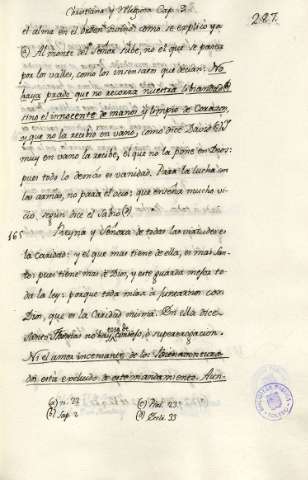 Christiana y Mistica Cap. 2.
287.
el alma en el orden Divino como se explicó ya
(a) Al monte del Señor sube, no el que se pasea
por los valles, como los insensatos que decian: No
haya prado que no recorra nuestra
sino el innocente de manos y limpio de Corazon,
y que no la recibe en vano como dice David (c) Y
muy en vano la recibe, el que no la pone en Dios:
pues todo lo demas es vanidad. Para la lucha son
las armas, no para el ocio: que enseña mucho vi-
cio, segun dice el Sabio (d)
165 Reyna y Señora de todas las virtudes es
la caridad: y el que mas tiene de ella, es mas San-
to: pues tiene mas de Dios, y este guarda mejor to-
da la ley: porque toda mira à juntarnos con
Dios, que es la Caridad misma. En ella dice
Santo Thomas no hay cosa de consejo, ò supererogacion.
Ni el amor incesante de los Bienaventurados
está excluido de este mandamiento. Aun-
(a) n. 22
(b) Sap. 2
(c) Psal. 23
(d) Ecli. 33